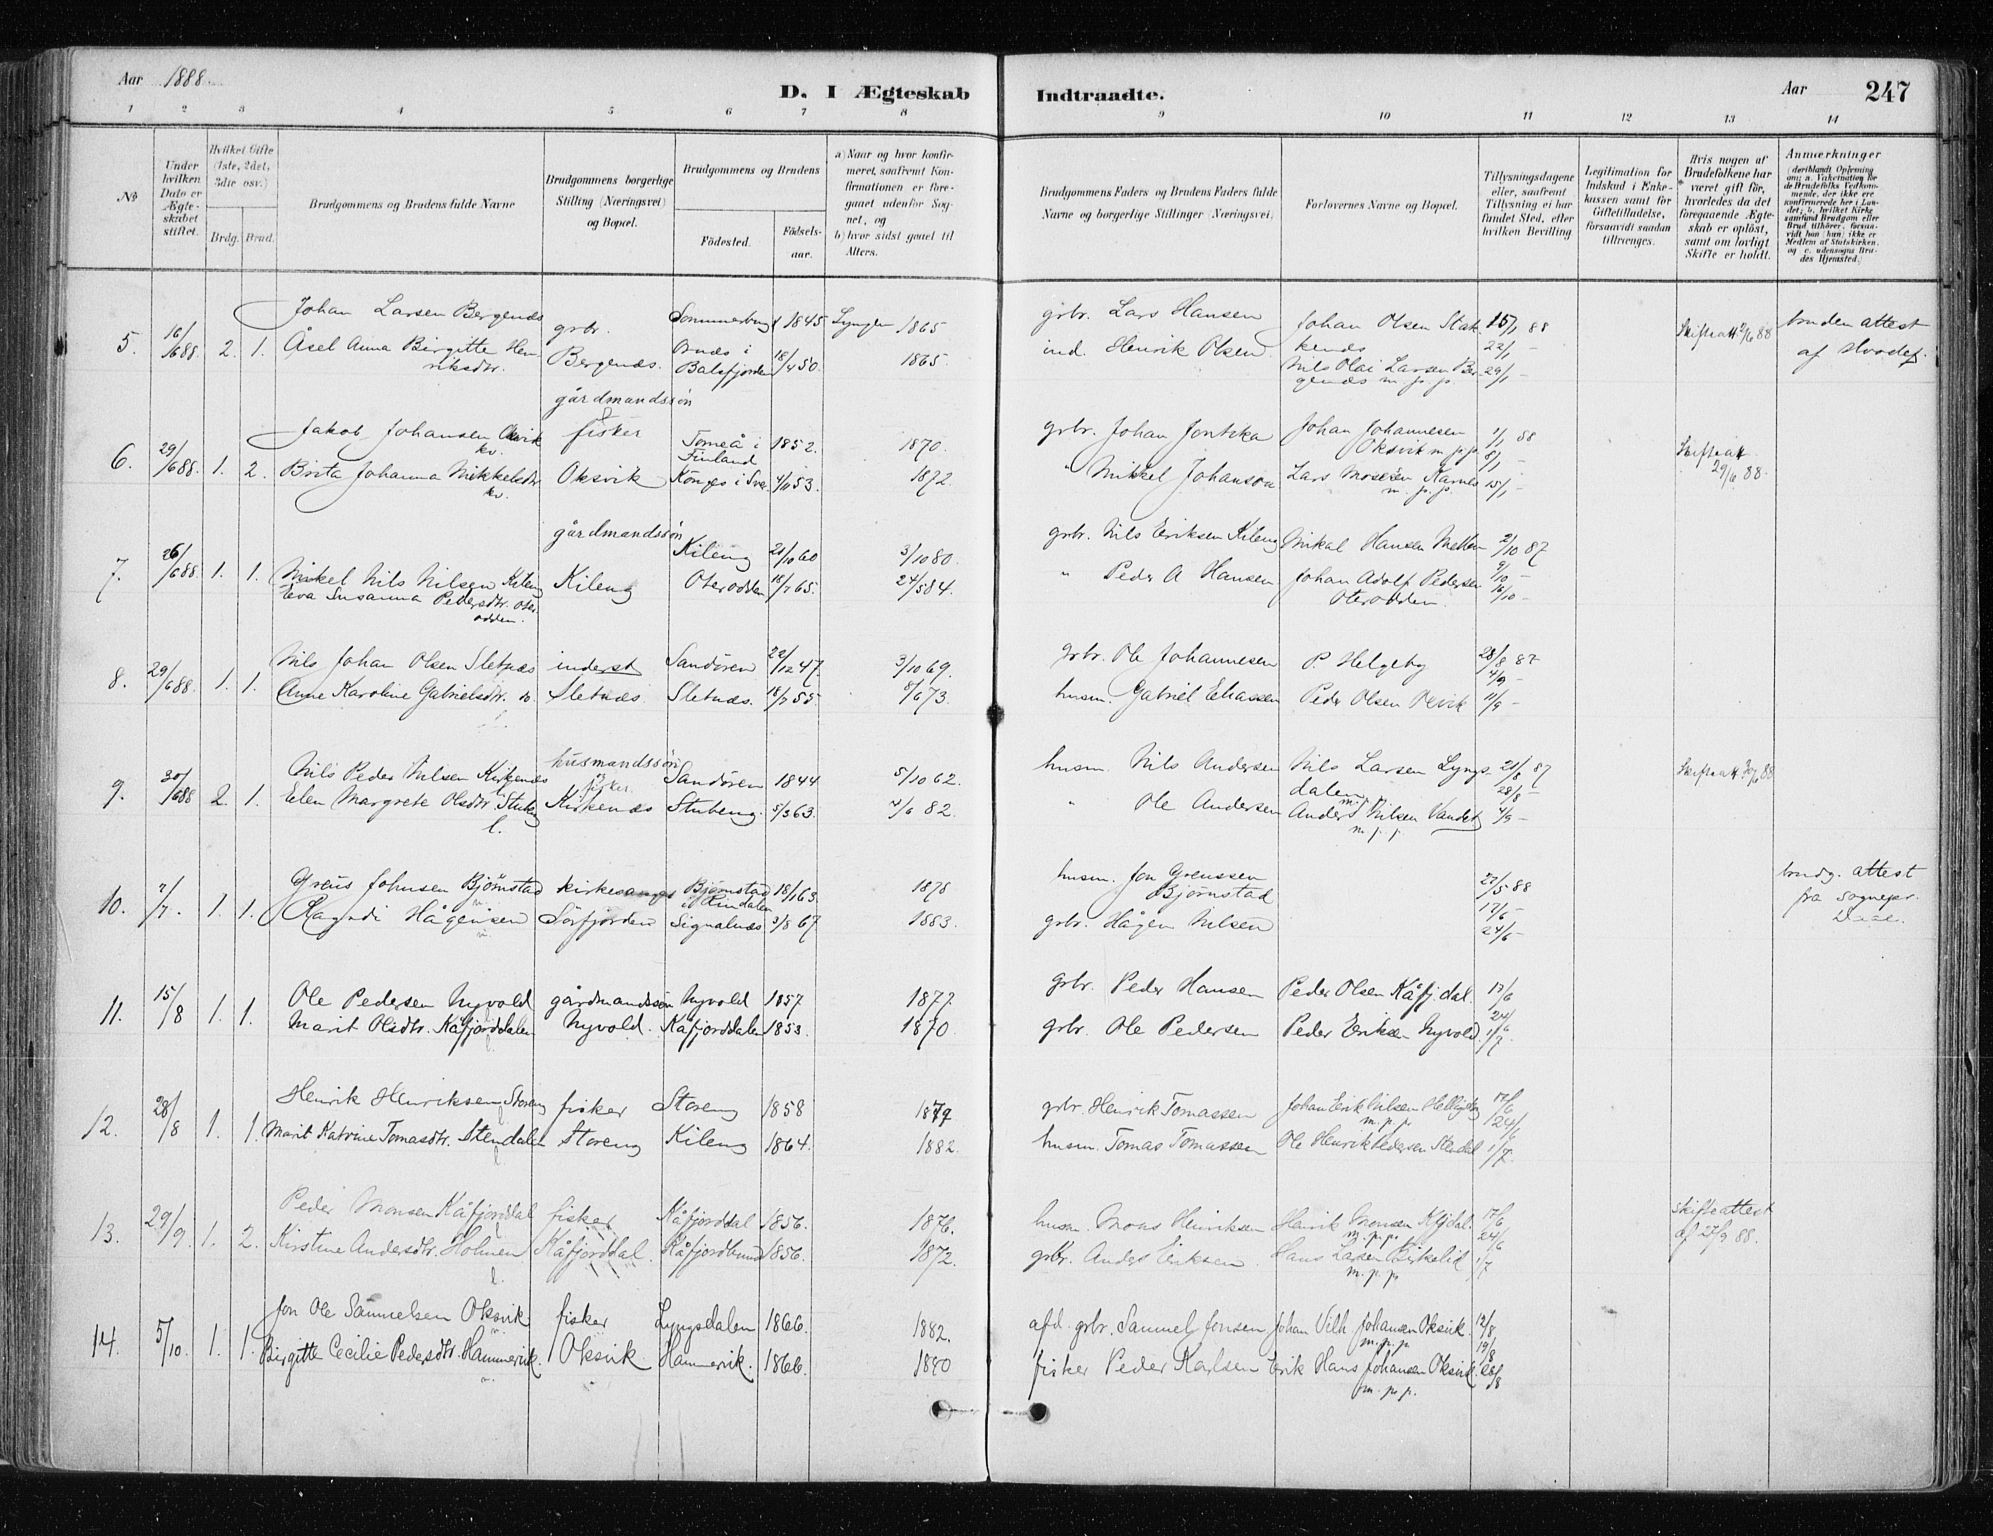 Aar 1888.
D. I Ægteskab Indtraadte.
Aar 247
1 2 3 4 5 6 7 8 9 10 11 12 13 14
No
Under hvilken Dato er Ægteskabet stiftet.
Hvilket Gifte (1ste, 2det, 3die osv.)
Brdg. Brud.
Brudgommens og Brudens fulde Navne
Brudgommens borgerlige Stilling (Næringsvei) og Bopæl.
Brudgommens og Brudens
Fødested. Fødselsaar.
a) Naar og hvor konfirmeret, saafremt Konfirmationen er foregaaet udenfor Sognet, og
b) hvor sidst gaaet til Alters.
Brudgommens Faders og Brudens Faders fulde Navne og borgerlige Stillinger (Næringsvei).
Forlovernes Navne og Bopæl.
Tillysningsdagene eller, saafremt Tillysning ei har fundet Sted, efter hvilken Bevilling
Legitimation for Indskud i Enkekassen samt for Giftetilladelse, forsaavidt saadan tiltrænges.
Hvis nogen af Brudefolkene har været gift før, hvorledes da det foregaaende Ægteskab er opløst, samt om lovligt Skifte er holdt.
Anmærkninger
5. 16/688. 2. 1. Johan Larsen Bergenæs grbr. 1845 Lyngen 1865 grbr. Lars Hansen Johan Olsen Stak- 15/1 88 Skifteatt 2/6 88 bruden attest
Åsel Anna Birgitte Henriksdtr. Bergenæs. i Balsfjorden 18/4 50. 1865. ind. Henrik Olsen kenes 22/1 - af
Nils Olai Larsen Bergenæs m.p.p. 29/1 -
gårdmandssøn
6. 29/688. 1. 2. Jakob Johansen Oksvik kv. & fisker Torneå i Finland 1852. 1870. grbr. Johan Johan Johannesen Oksvik m.p.p. 1/1 88 Skifteatt
Brita Johanna Mikkelsdtr. kv. Oksvik i Sve. 53. 1872. " Mikkel Johanson Lars Mosesen Karnes m.p.p. 8/1 - 15/1 - 29/6 88.
gårdmandssøn
7. 26/688. 1. 1. Mikel Nils Nilsen Kileng Kileng Kileng 21/10 60 3/10 80. grbr. Nils Eriksen Kileng Mikal Hansen 2/10 87
Eva Susanna Pedersdtr. Oterodden. Oterodden 18/7 65. 24/5 84. " Peder A Hansen Johan Adolf Pedersen Oterodden. 9/10 - 16/10 -
8. 29/688. 1. 1. Nils Johan Olsen Sletnæs inderst Sandøren 22/12 47. 3/10 69. grbr. Ole Johannesen P. Helgeby 28/8 87
Anne Karoline Gabrielsdtr. Sletnæs Sletnæs. 18/7 55. 8/6 73. husm. Gabriel Eliassen Peder Olsen 4/9 - 11/9 -
9. 30/688 2. 1. Nils Peder Nilsen Kirkenæs husmandssøn & fisker Sandøren 1844 5/10 62. husm. Nils Andersen Nils Larsen Lyngsdalen m.p.p. 21/8 87 Skifteatt. 30/6 88
Elen Margrete Olsdtr. l. Kirkenæs Stubeng. 5/3 63. 4/6 82. " Ole Andersen Anders Nilsen Vandet m.p.p. 28/8 - 4/9 -
10. 7/7. 1. 1. Greus Johnsen Bjørnstad kirkesanger Bjørnstad i Rindalen 18/1 63. 1878 husm. Jon Greussen Bjørnstad 27/5 88 brudg. attest
Ragndi Hågensen Sørfjorden Signalnæs 3/8 67 1883. grbr. Hågen Nilsen 17/6 - 24/6 - fra sognepr. Daae.
11. 15/8 1. 1. Ole Pedersen Nyvold gårdmandssøn Nyvold 1857 1877. grbr. Peder Hansen Peder Olsen Kåfj.dal. 17/6
Marit Olsdtr. Kåfjorddalen Nyvold. Kåfjorddalen 1853. 1870. grbr. Ole Pedersen Peder Eriksen Nyvold. 24/6 1/7.
12. 28/8 1. 1. Henrik Henriksen Storeng fisker Storeng 1858 1879 grbr. Henrik Tomassen Johan Erik Nilsen m.p.p. 17/6
Marit Katrine Tomasdtr. Stendalen Storeng Kileng 1864. 1882. husm. Tomas Tomassen Ole Henrik Pedersen Stendal 24/6 1/7.
13. 29/9. 1. 2. Peder Monsen Kåfjorddal fisker Kåfjorddal 1856. 1876. husm. Mons Henriksen Henrik Monsen Kfjdal. m.p.p. 17/6 skifteattest
Kirstine Andersdtr. Holmen Kåfjorddal Kåfjordbund 1856. 1872. grbr. Anders Eriksen Hans Larsen Birkelid m.p.p. 24/6 1/7 af 27/9 88.
14. 5/10. 1. 1. Jon Ole Samuelsen Oksvik fisker Lyngsdalen 1866. 1882. afd. grbr. Samuel Jonsen Johan Vilh Johansen Oksvik m.p.p. 12/8
Birgitte Cecilie Pedersdtr. Hammervik. Oksvik Hammervik. 1866. 1880 fisker Peder Karlsen Erik Hans Johansen Oksvik. m.p.p. 19/8 26/8